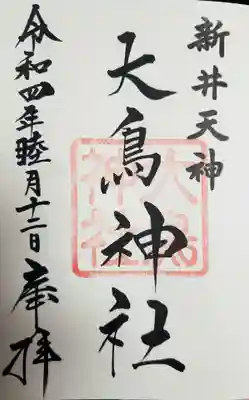 新井天神
大鳥神社
令和四年睦月十二日
奉拝
大鳥神社